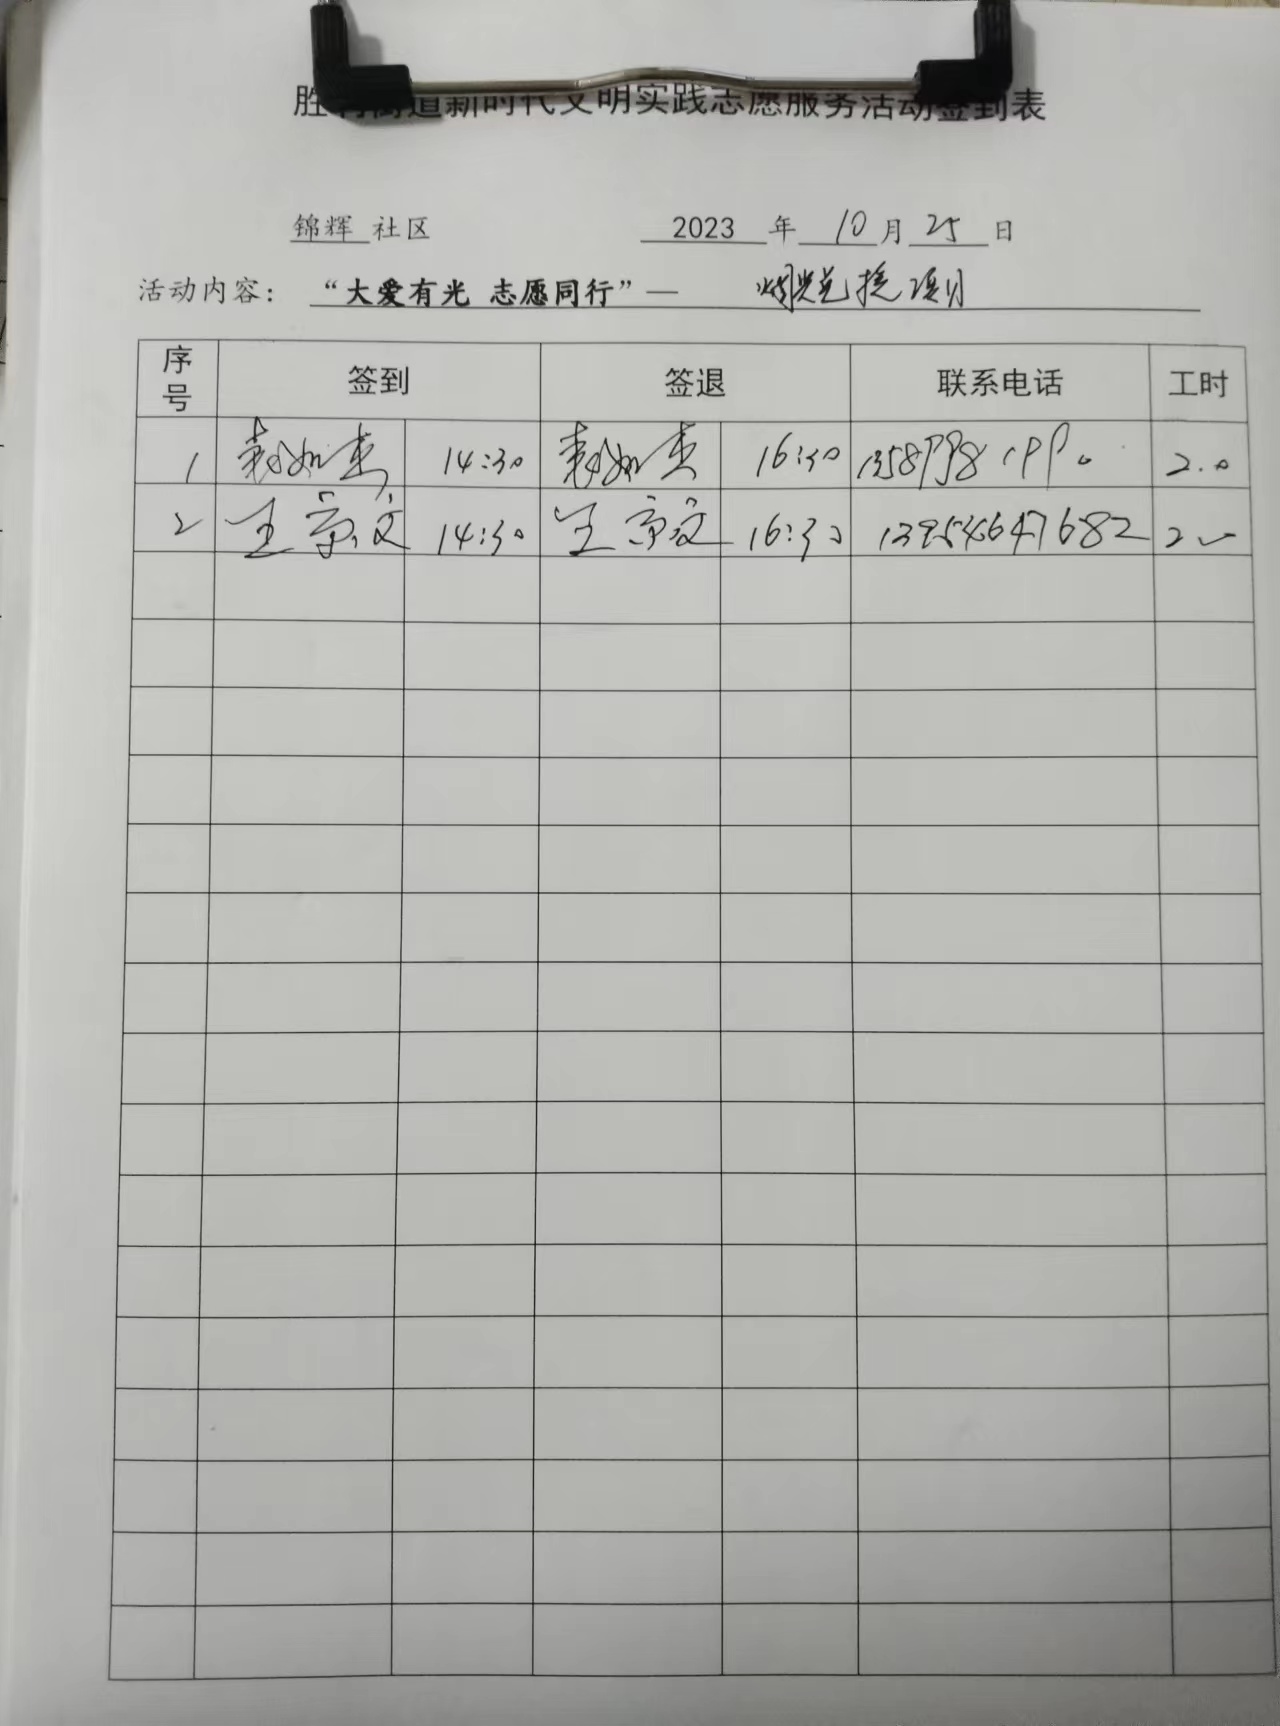 胜利街道新时代文明实践志愿服务活动签到表
锦辉 社区 2023 年 10 月 25 日
活动内容： “大爱有光 志愿同行”— 烟头兑换项目
序号 签到 签退 联系电话 工时
1 14:30 16:30 2.0
2 王京文 14:30 王京文 16:30 13954647682 2